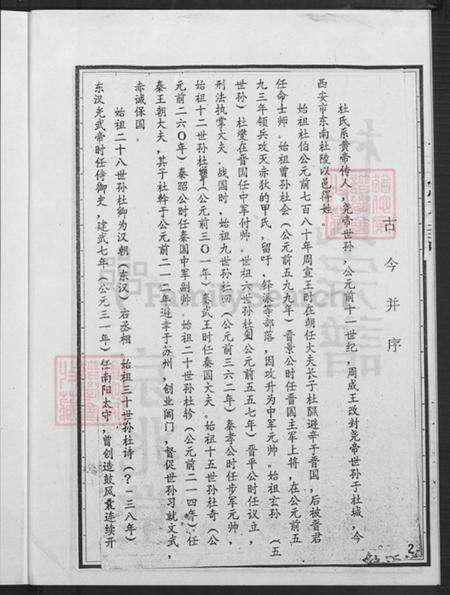 古今并序
杜氏系黄帝传人，尧帝世孙，公元前十一世纪，周成王改封尧帝世孙于杜城，今
西安市东南杜陵以邑得姓。
始祖杜伯公元前七八十年周宣王时在朝任大夫长子杜隰避辛于晋国，后被晋君
任命士师。始祖曾孙杜会（公元前五九九年）晋景公时任晋国主军上将，在公元前五
九三年领兵攻灭赤狄的甲氏，留吁，铎派等部落，因攻升为中军元帅。始祖玄孙（五
世孙）杜燮在晋国任中军付帅。世祖六世孙杜匄（公元前五五七年）晋平公时任议立，
刑法执掌大夫。战国时，始祖九世孙杜回（公元前三六二年）秦孝公时任步军元帅，
始祖十二世孙杜挚（公元前三〇一年）秦武王时任秦国大夫。始祖十五世孙杜奇（公
元前二六〇年）秦昭公时任秦国中军副帅。始祖二十世孙杜轸（公元前二一四年）任
秦王朝大夫，其子杜幹于公元前二一二年避辛于苏州，创业阊门，督促世孙习就文武，
赤诚保国。
始祖二十八世孙杜卿为汉朝（东汉）右丞相 始祖三十世孙杜诗（？—三八年）
东汉光武帝时任侍御史，建武七年（公元三一年）任南阳太守，曾创造鼓风囊连续开
2